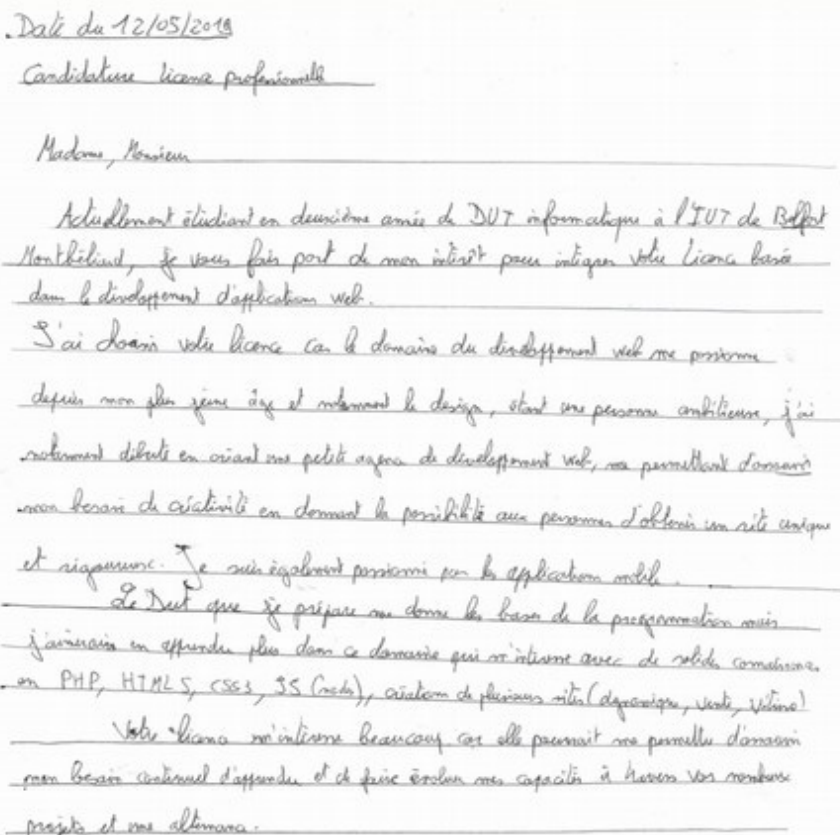 Date du 12/05/2019
Candidature licence professionnelle
Madame, Monsieur
Actuellement étudiant en deuxième année de DUT informatique à l'IUT de Belfort
Montbéliard, je vous fais part de mon intérêt pour intégrer votre Licence basée
dans le développement d'applications web.
J'ai choisi votre licence car le domaine du développement web me passionne
depuis mon plus jeune âge et notamment le design, étant une personne ambitieuse, j'ai
notamment débuté en créant une petite agence de développement web, me permettant d'assouvir
mon besoin de créativité en donnant la possibilité aux personnes d'obtenir un site unique
et rigoureux. Je suis également passionné par les applications mobile.
Le Dut que je prépare me donne les bases de la programmation mais
j'aimerais en apprendre plus dans ce domaine qui m'intéresse avec de solides connaissances
en PHP, HTML5, CSS3, JS (node), création de plusieurs sites (dynamique, vente, vitrine)
Votre licence m'intéresse beaucoup car elle pourrait me permettre d'assouvir
mon besoin continuel d'apprendre et de faire évoluer mes capacités à travers vos nombreux
projets et une alternance.